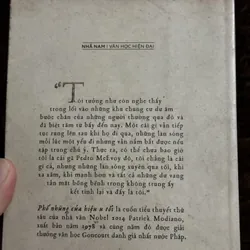 NHÃ NAM | VĂN HỌC HIỆN ĐẠI
“Tôi tưởng như còn nghe thấy
trong lối vào những khu chung cư dư âm
bước chân của những người thường qua đó và
đã biệt tăm từ bấy đến nay. Một cái gì vẫn tiếp
tục rung lên sau khi họ đi qua, những làn sóng
mỗi lúc một yếu đi nhưng vẫn nắm bắt được nếu
tập trung chú ý. Thực ra, có thể chưa bao giờ
tôi là cái gã Pedro McEvoy đó, tôi chẳng là cái
gì cả, nhưng những làn sóng xuyên qua tôi, khi
xa xăm, khi mạnh hơn và tất cả những dư vang
tản mát bồng bềnh trong không trung ấy
kết tinh lại và đấy là tôi.”
Phố những cửa hiệu u tối là cuốn tiểu thuyết thứ
sáu của nhà văn Nobel 2014 Patrick Modiano,
xuất bản năm 1978 và cùng năm đó được giải
thưởng văn học Goncourt danh giá nhất nước Pháp.